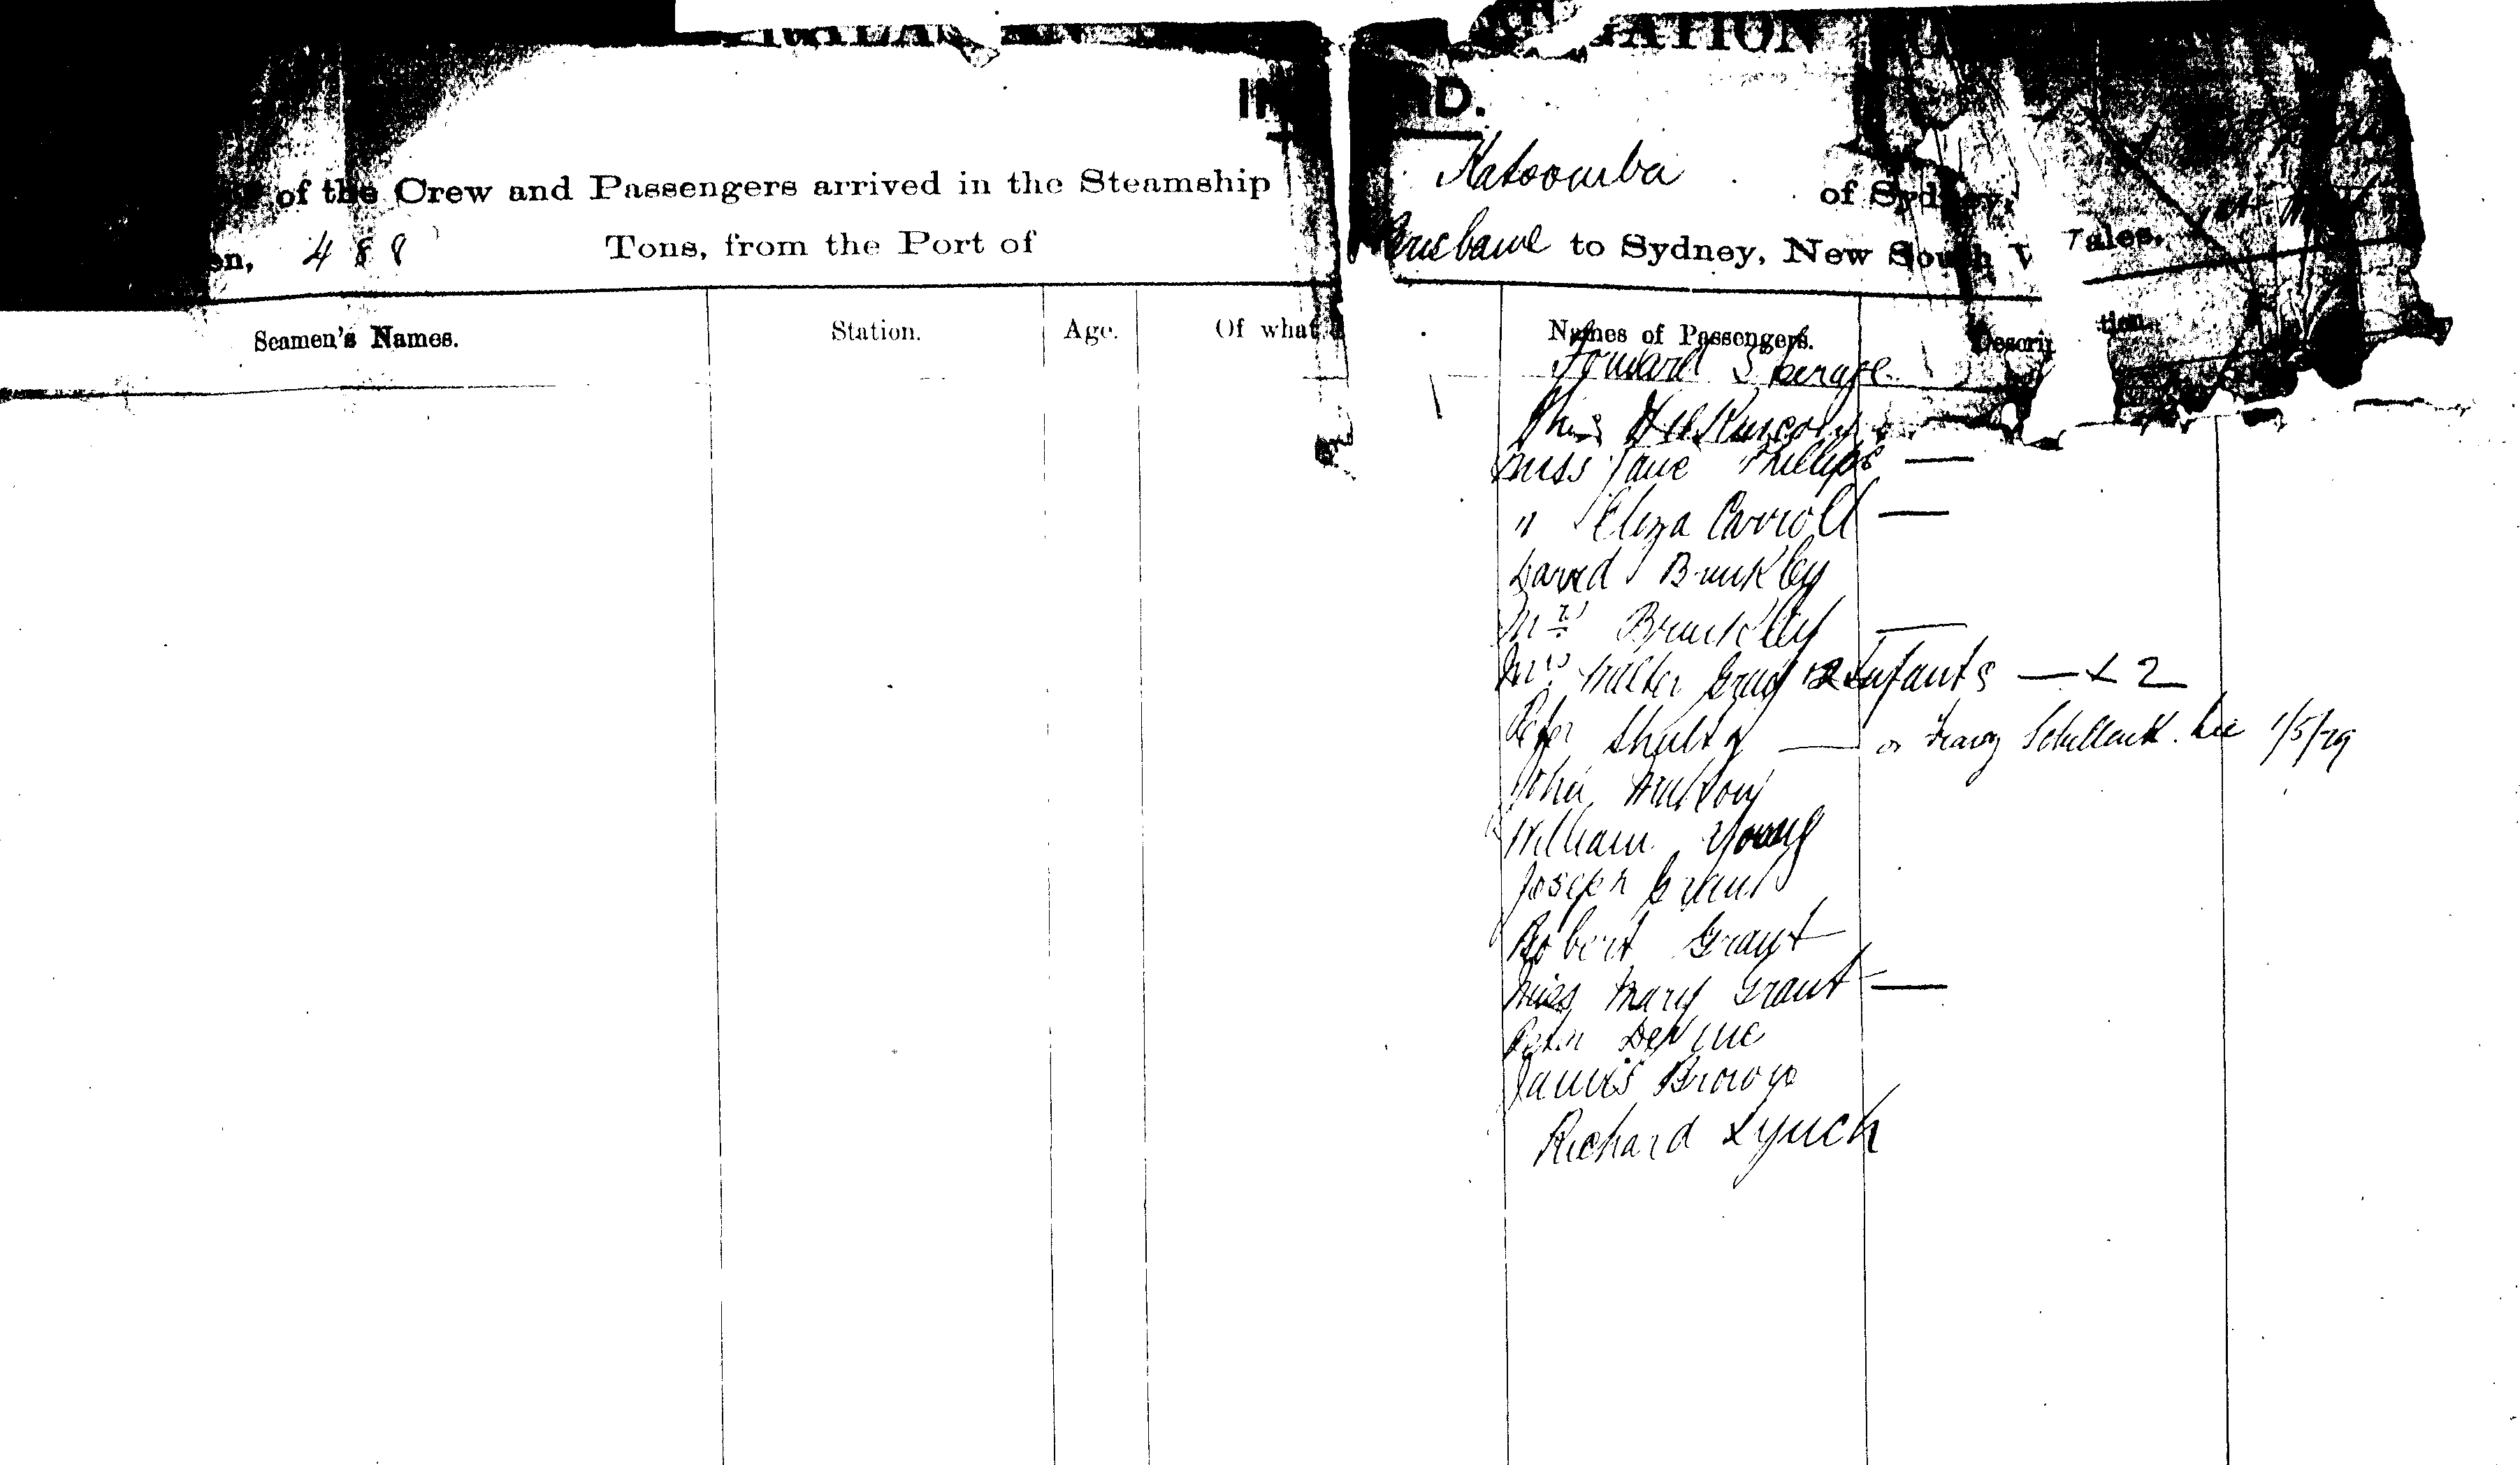 GATION
of the Crew and Passengers arrived in the Steamship Katoomba of Sydney,
488 Tons, from the Port of Brisbane to Sydney, New South Wales,
Seamen's Names. Station. Age. Of what Names of Passengers.
Forward Steerage
Miss Jane Phillips —
" Eliza Carroll —
David Brinkley
Mrs Brinkley —
Mrs Walter Gray 2 Infants — & 2
Peter Shultz — or 1/5/29
John
William Young
Joseph Grant
Robert Grant
Miss Mary Grant —
Peter Devine
James Brown
Richard Lynch